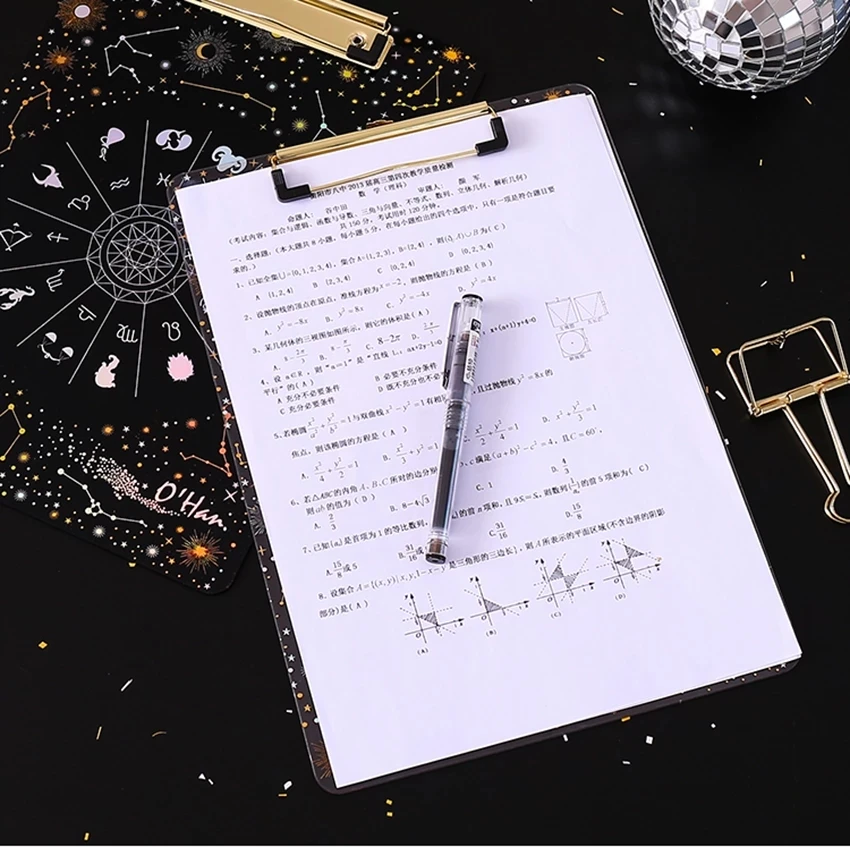 衡阳市八中2013届高三第四次教学质量检测
数 学（理科）
命题人： 谷中田 审题人： 颜 军
（考试内容：集合与逻辑、函数与导数、三角与向量、不等式、数列、立体几何、解析几何）
共150分，考试用时120分钟。
一、选择题：（本大题共8小题，每小题5分，在每小题给出的四个选项中，只有一项是符合题目要
求的.）
1、已知全集U={0,1,2,3,4}，集合A={1,2,3}，B={2,4}，则(∁ᵤA)∪B为( C )
A {1,2,4} B {2,3,4} C {0,2,4} D {0,2,3,4}
2、设抛物线的顶点在原点，准线方程为x=-2，则抛物线的方程是( B )
A. y²=-8x B. y²=8x C. y²=-4x D. y²=4x
3、某几何体的三视图如图所示，则它的体积是( A )
C. 8-2π
4、设a∈R，则“a=1”是“直线l₁：ax+2y-1=0 x+(a+1)y+4=0
平行”的( A )
A 充分不必要条件 B 必要不充分条件
C 充分必要条件 D 既不充分也不必
5、若椭圆x²/a²+y²/b²=1与双曲线x²-y²=1有相 且过抛物线y²=8x的
焦点，则该椭圆的方程是( A )
A. x²/4+y²/2=1 B. x²/3+y²=1 C. x²/2+y²/4=1 D. x²+y²/3=1
6、若△ABC的内角A、B、C所对的边分别 c满足(a+b)²-c²=4，且C=60°，
则ab的值为( D )
A. 2/3 B. 8-4√3 C. 1 D. 4/3
7、已知{aₙ}是首项为1的等比数列， 的前n项和，且9S₃=S₆，则数列{1/aₙ}的前5项和为( C )
A. 15/8或5 B. 31/16或 C. 31/16 D. 15/8
8、设集合A={(x,y)|x,y,1-x-y是三角形的三边长}，则A所表示的平面区域(不含边界的阴影
部分)是( A )
(A) (B) (C) (D)
O'Han